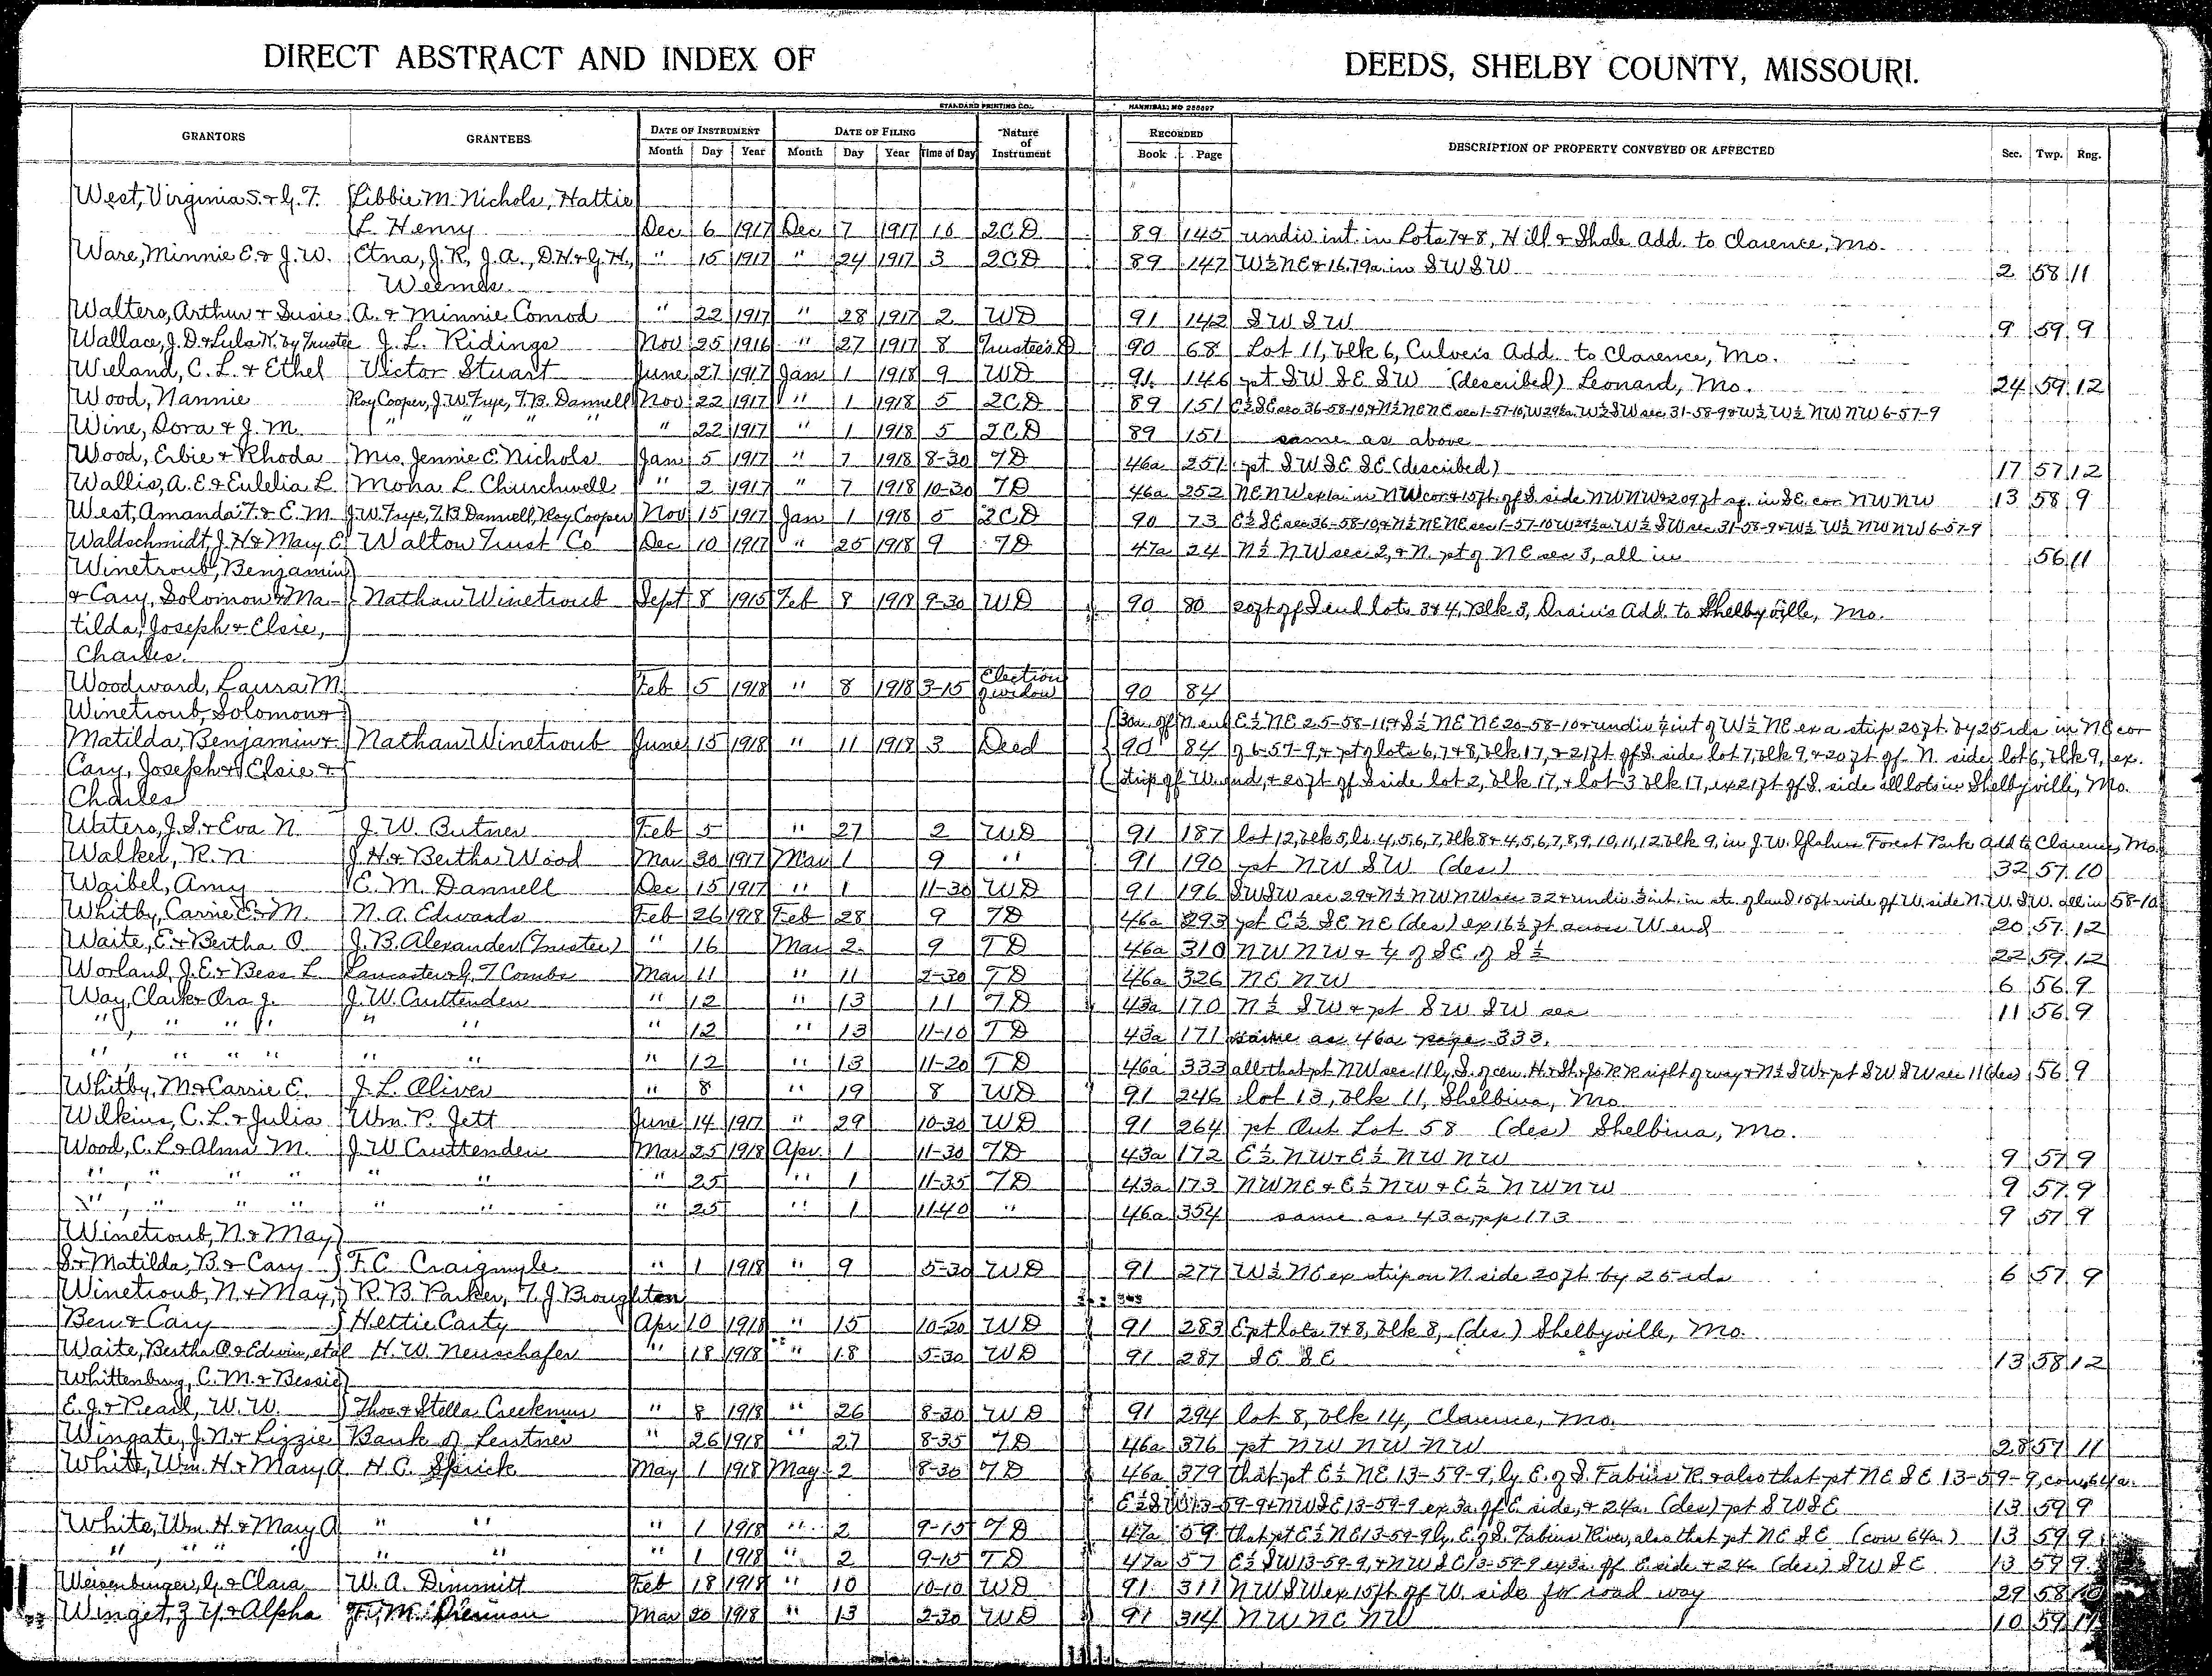 DIRECT ABSTRACT AND INDEX OF DEEDS, SHELBY COUNTY, MISSOURI.
STANDARD PRINTING CO. HANNIBAL, MO
GRANTORS GRANTEES DATE OF INSTRUMENT DATE OF FILING Nature of Instrument RECORDED DESCRIPTION OF PROPERTY CONVEYED OR AFFECTED Sec. Twp. Rng.
Month Day Year Month Day Year Time of Day Book Page
West, Virginia S. & G. T. Libbie M. Nichols, Hattie
L. Henry Dec 6 1917 Dec 7 1917 10 2CD 89 145 undiv int. in Lots 7&8, Hill & Shale Add. to Clarence, Mo.
Ware, Minnie E. & J. W. Etna, J. R, J. A., D. H & G. H., " 15 1917 " 24 1917 3 2CD 89 147 W½ NE & 16.79a. in SW SW 2 58 11
Weemes
Walters, Arthur & Susie A. & Minnie Conrod " 22 1917 " 28 1917 2 WD 91 142 SW SW 9 59 9
Wallace, J. D. & Lula K. by Trustee J. L. Ridings Nov 25 1916 " 27 1917 8 Trustee's D 90 68 Lot 11, blk 6, Culver's Add. to Clarence, Mo.
Wieland, C. L. & Ethel Victor Stuart June 27 1917 Jan 1 1918 9 WD 91 146 pt SW SE SW (described) Leonard, Mo. 24 59 12
Wood, Nannie Roy Cooper, J. W. Frye, T. B. Dannell Nov 22 1917 " 1 1918 5 2CD 89 151 E½ SE sec 36-58-10, & N½ NE NE sec 1-57-10, W 29½a. W½ SW sec. 31-58-9 & W½ W½ NW NW 6-57-9
Wine, Dora & J. M. " " " " " 22 1917 " 1 1918 5 2CD 89 151 same as above
Wood, Erbie & Rhoda Mrs. Jennie E. Nichols Jan 5 1917 " 7 1918 8-30 TD 46a 251 pt SW SE SE (described) 17 57 12
Wallis, A. E & Eulelia L Mona L. Churchwell " 2 1917 " 7 1918 10-30 TD 46a 252 NE NW ex 1a in NW cor & 15ft. off S side NW NW & 209ft sq. in SE. cor NW NW 13 58 9
West, Amanda T. & E. M J. W. Frye, T. B Dannell, Roy Cooper Nov 15 1917 Jan 1 1918 5 2CD 90 73 E½ SE sec 36-58-10, & N½ NE NE sec 1-57-10 W 29½a. W½ SW sec. 31-58-9 & W½ W½ NW NW 6-57-9
Waldschmidt, J. H & Mary E. Walton Trust Co Dec 10 1917 " 25 1918 9 TD 47a 24 N½ NW sec 2, & N. pt of NE sec 3, all in 56 11
Winetroub, Benjamin
& Cary, Solomon & Ma- Nathan Winetroub Sept 8 1915 Feb 8 1918 9-30 WD 90 80 20ft off S end lots 3&4, Blk 3, Drain's Add. to Shelbyville, Mo.
tilda, Joseph & Elsie,
Charles.
Woodward, Laura M. Feb 5 1918 " 8 1918 3-15 Election of widow 90 84
Winetroub, Solomon & 30a. off N. end E½ NE 25-58-11, & S½ NE NE 20-58-10 & undiv ½ int of W½ NE ex a strip 20ft. by 25 rds in NE cor
Matilda, Benjamin & Nathan Winetroub June 15 1918 " 11 1918 3 Deed 90 84 of 6-57-9, & pt of lots 6, 7&8, blk 17, & 21ft off S. side lot 7, blk 9 & 20ft off N. side lot 6, blk 9, ex.
Cary, Joseph & Elsie & strip off W. end, & 20ft off S side lot 2, blk 17, & lot 3 blk 17, ex 21ft off S. side all lots in Shelbyville, Mo.
Charles
Waters, J. S. & Eva N. J. W. Butner Feb 5 " 27 2 WD 91 187 lot 12, blk 5, ls. 4,5,6,7, blk 8 & 4,5,6,7,8,9,10,11,12 blk 9, in J. W. Forest Park Add to Clarence, Mo.
Walker, R. N J. H & Bertha Wood Mar 30 1917 Mar 1 9 " 91 190 pt NW SW (des) 32 57 10
Waibel, Amy E. M. Dannell Dec 15 1917 " 1 11-30 WD 91 196 SW SW sec 29 & N½ NW NW sec 32 & undiv. ½ int. in str. of land 15ft wide off W. side N. W. S. W. all in 58-10
Whitby, Carrie E. & M. N. A. Edwards Feb 26 1918 Feb 28 9 TD 46a 293 pt E½ SE NE (des) ex 16½ ft across W end 20 57 12
Waite, E & Bertha O. J. B. Alexander (Trustee) " 16 Mar 2 9 TD 46a 310 NW NW & ¼ of SE of S½ 22 59 12
Worland, J. E. & Bess L. Lancaster & G. T Combs Mar 11 " 11 2-30 TD 46a 326 NE NW 6 56 9
Way, Clark & Ora J. J. W. Cruttenden " 12 " 13 11 TD 43a 170 N½ SW & pt SW SW sec 11 56 9
" " " " " " " 12 " 13 11-10 TD 43a 171 same as 46a page 333.
" " " " " " " 12 " 13 11-20 TD 46a 333 all that pt NW sec 11 ly S. of cen. H. & St. Jo R R right of way & N½ SW & pt SW SW sec 11 (des) 56 9
Whitby, M. & Carrie E. J. L. Oliver " 8 " 19 8 WD 91 246 lot 13, blk 11, Shelbina, Mo
Wilkins, C. L. & Julia Wm. P. Jett June 14 1917 " 29 10-30 WD 91 264 pt Out Lot 58 (des) Shelbina, Mo.
Wood, C. L & Alma M. J W Cruttenden Mar 25 1918 Apr 1 11-30 TD 43a 172 E½ NW & E½ NW NW 9 57 9
" " " " " " " 25 " 1 11-35 TD 43a 173 NW NE & E½ NW & E½ NW NW 9 57 9
" " " " " " " 25 " 1 11-40 " 46a 354 same as 43a, pp. 173 9 57 9
Winetroub, N. & May
S. & Matilda, B. & Cary F. C. Craigmyle " 1 1918 " 9 5-30 WD 91 277 W½ NE ex strip on N side 20ft. by 25 rds 6 57 9
Winetroub, N. & May, R. B. Parker, T. J. Broughton
Ben & Cary Hettie Carty Apr 10 1918 " 15 10-30 WD 91 283 E pt lots 7&8, blk 8, (des.) Shelbyville, Mo.
Waite, Bertha O. & Edwin, etal H. W. Neuschafer " 18 1918 " 18 5-30 WD 91 287 SE SE 13 58 12
Whittenburg, C. M. & Bessie
E. J. & Pearl, W. W. Thos & Stella Creekmur " 8 1918 " 26 8-30 WD 91 294 lot 8, blk 14, Clarence, Mo.
Wingate, J. N. & Lizzie Bank of Lentner " 26 1918 " 27 8-35 TD 46a 376 pt NW NW NW 28 57 11
White, Wm. H & Mary A H. C. Sprick May 1 1918 May 2 8-30 TD 46a 379 that pt E½ NE 13-59-9, ly E. of S. Fabius R. & also that pt NE SE 13-59-9, con. 64a.
E½ SW 13-59-9 & NW SE 13-59-9 ex 3a. off E side, & 24a. (des) pt SW SE 13 59 9
White, Wm. H & Mary A " " " 1 1918 " 2 9-15 TD 47a 59 that pt E½ NE 13-59-9 ly. E. of S. Fabius River, also that pt NE SE (con 64a.) 13 59 9
" " " " " " 1 1918 " 2 9-15 TD 47a 57 E½ SW 13-59-9, & NW SE 13-59-9 ex 3a. off E. side & 24a (des) SW SE 13 59 9
Weisenburger, G. & Clara W. A. Dimmitt Feb 18 1918 " 10 10-10 WD 91 311 NW SW ex 15ft off W. side for road way 29 58 10
Winget, Z Y. & Alpha F. M. Mar 20 1918 " 13 2-30 WD 91 314 NW NE NW 10 59 11